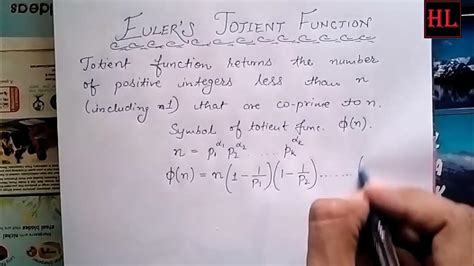 HL
EULER'S TOTIENT FUNCTION
Totient function returns the number
of positive integers less than n
(including 1) that are co-prime to n.
Symbol of totient func. ϕ(n).
n = p₁^α₁ p₂^α₂ ..... pₖ^αₖ
ϕ(n) = n(1 - 1/p₁)(1 - 1/p₂)......(